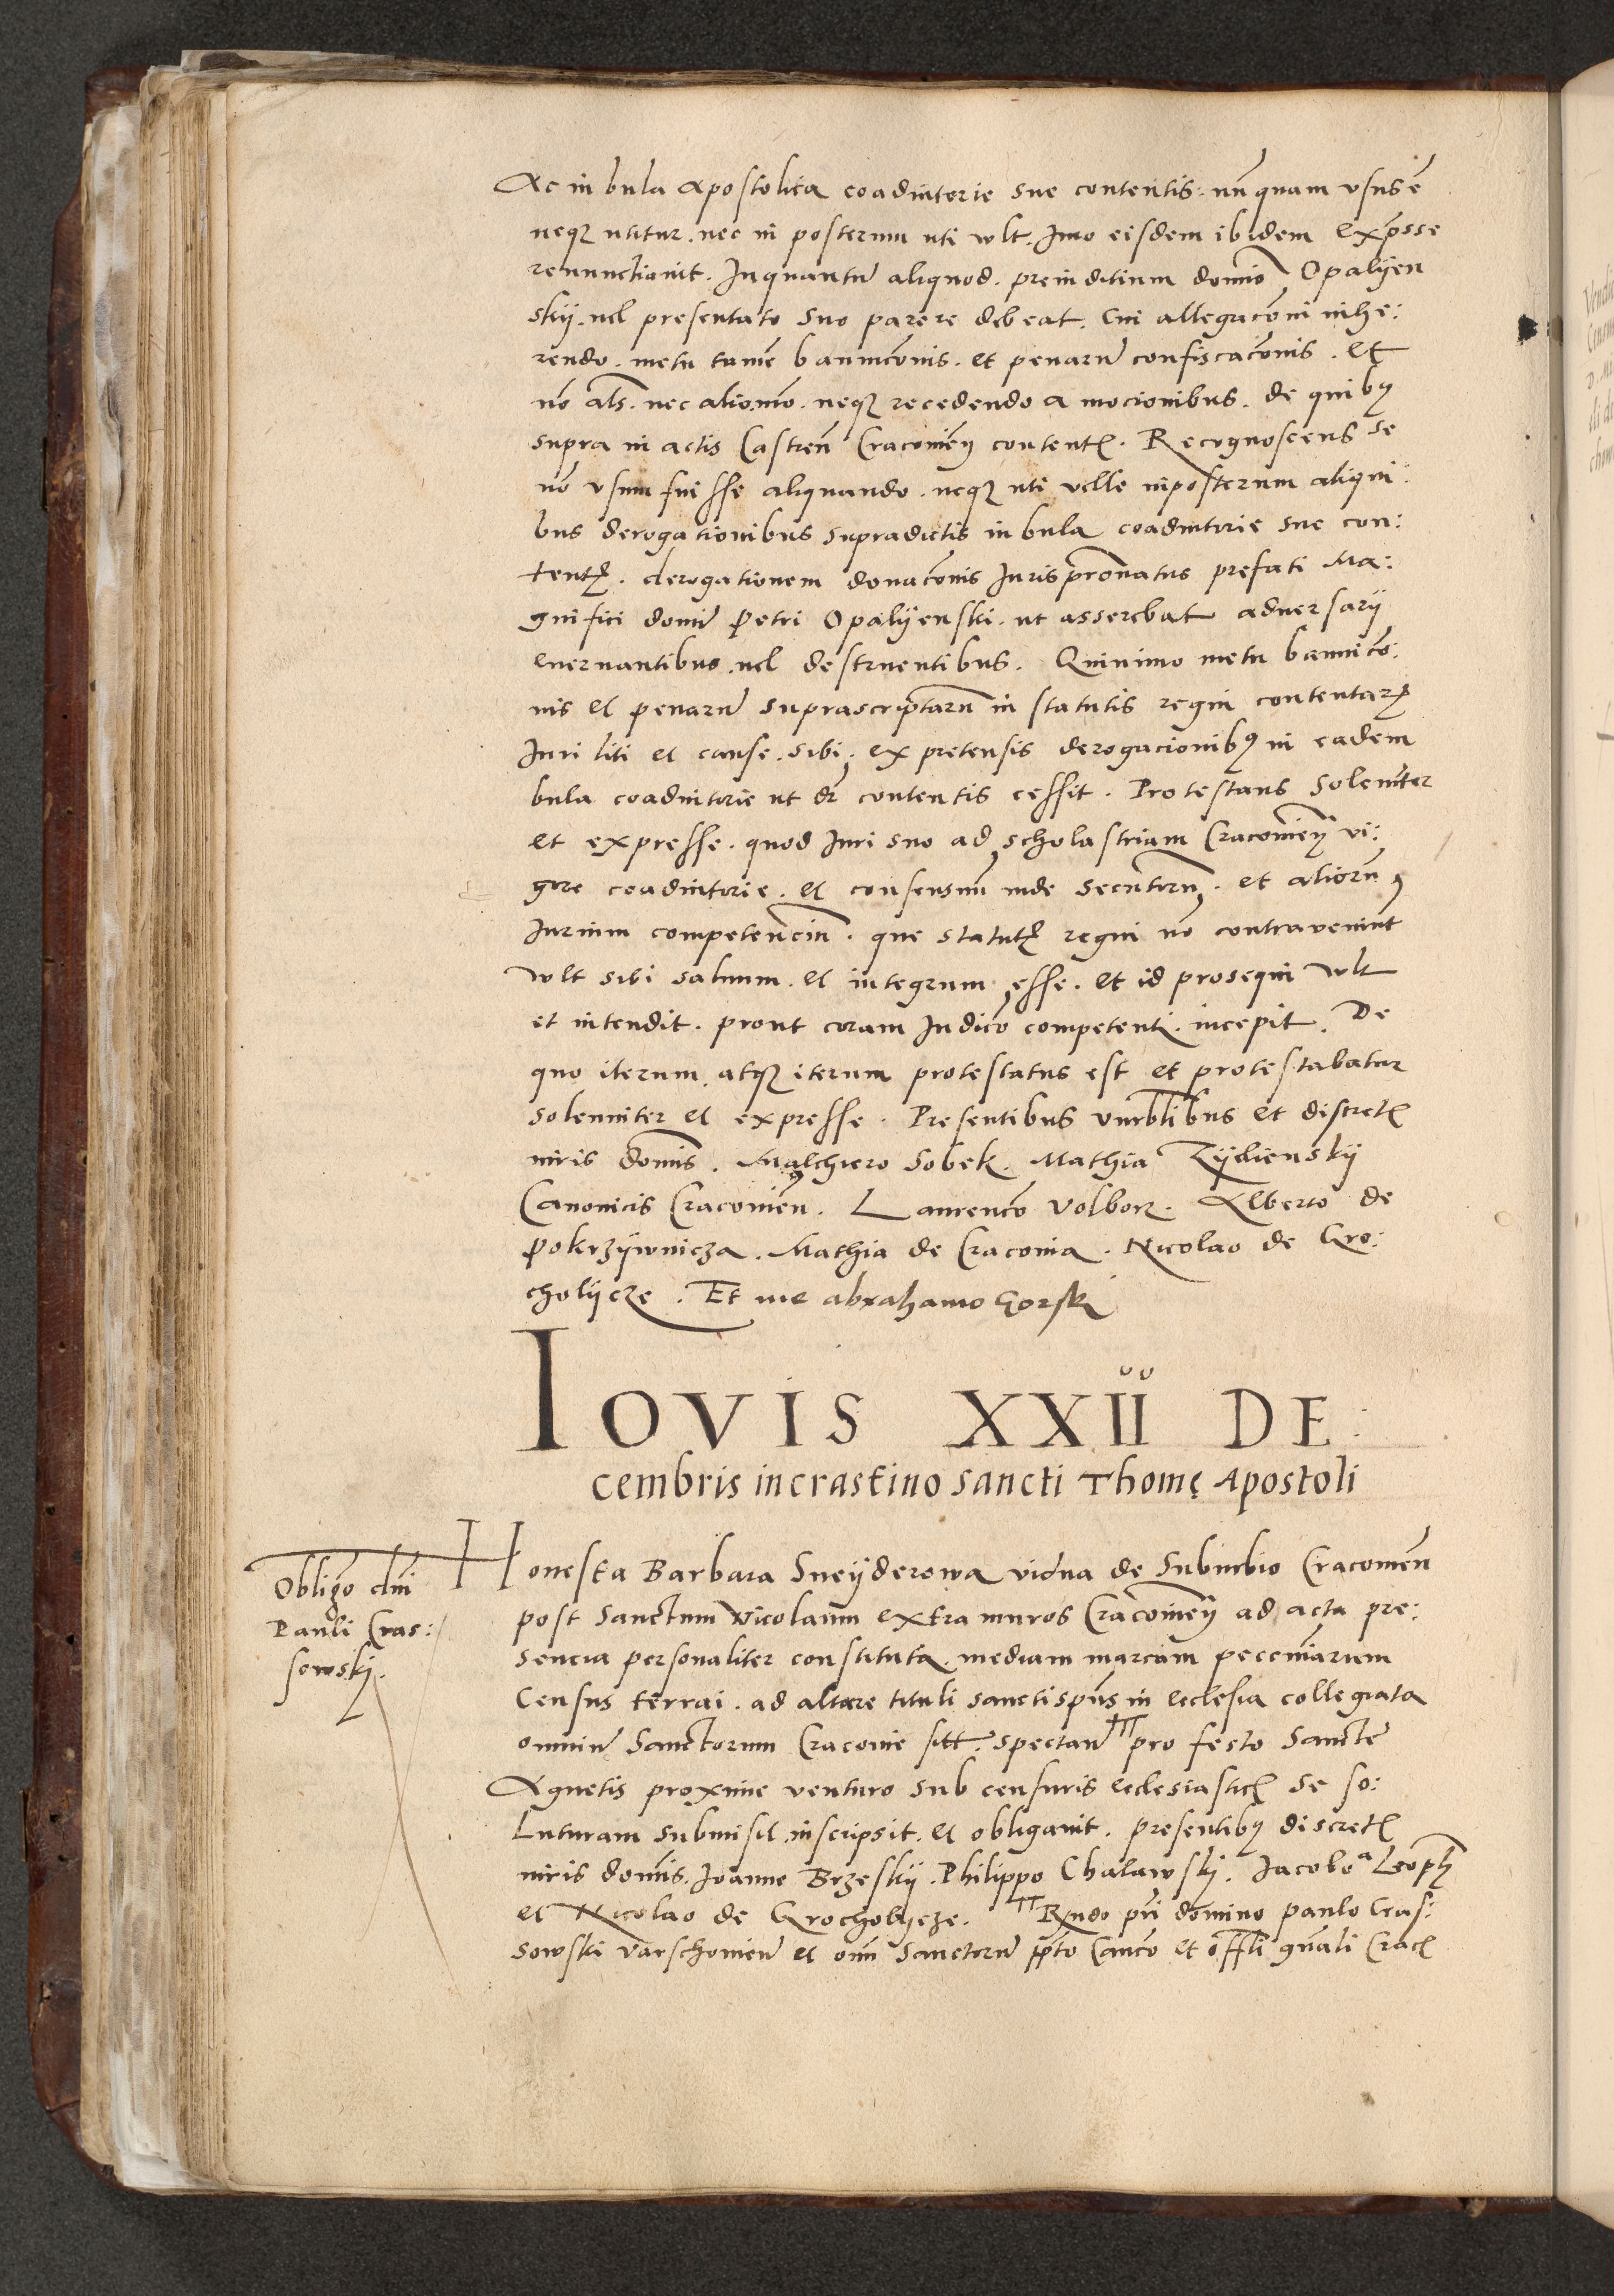 Ac in bula apostolica coadiutorie sue contentis. nūquam vsus ē
neqʒ utitur. nec in posterum uti wlt. Imo eisdem ibidem exp̄sse
renunctiauit. Inquantū aliquod. preiuditium domīo Opalyen
skij. uel presentato suo parere debeat. Cui allegacōni inhe:
rendo. metu tamē bannicōnis. et penarū confiscacōnis. et
nō al̄s. nec alio mō. neqʒ recedendo a mocionibus. de quibꝰ
supra in actis Castreñ Cracouieñ contentꝭ. Recognoscens se
nō vsum fuisse aliquando. neqʒ uti velle inposterum aliqui:
bus derogationibus supradictis in bula coadiutorie sue con:
tentꝭ. derogationem donacōnis Jurispr̄onatus prefati Ma:
gnifici domī Petri Opalyenski. ut asserebat aduersarij
eneruantibus. uel destruentibus. Quinimo metu bannicō:
nis et penarū suprascriptarū in statutis regni contentarꝭ
Juri liti et cause. sibi, ex pretensis derogacionibꝰ in eadem
bula coadiutorie ut dr̄ contentis cessit. Protestans Solemniter
et expresse. quod Juri suo ad scholastriam Cracouieñ vi:
gore coadiutorie. et consensuū inde secutorū. et aliorū
Jurium competenciū. que statutꝭ regni nō contraveniūt
wlt sibi saluum. et integrum esse. et id prosequi wlt
et intendit. prout coram Judicō competenti. incepit. De
quo iterum atqʒ iterum protestatus est et protestabatur
solenniter et expresse. Presentibus vnrblibus et discretꝭ
uiris domīs. Malchiero Sobek. Mathia Zyelienskij
Canonicis Cracouieñ. Laurencō Volborz. Alberto de
Pokrzywnicza. Mathia de Cracouia. Nicolao de Gro:
cholijcze. Et me abrahamo Gorsk
IOVIS XXII DE:
cembris in crastino sancti Thomę Apostoli
Obligō dn̄i
Pauli Cras:
sowskj.
Honesta Barbara Sneyderowa vidua de Suburbio Cracouieñ
post Sanctum Nicolaum extra muros Cracouieñ ad acta pre:
sencia personaliter constituta. mediam marcam pecceniarum
Census terrai. ad altare tituli sanctispūs in ecclesia collegiata
omniū Sanctorum Cracouie sitt. spectañ pro festo Sancte
Agnetis proxime venturo sub censuris ecclesiasticꝭ se so:
luturam submisit. inscripsit. et obligauit. presentibꝰ discretꝭ
uiris domīs. Joanne Brzeskij. Philippo Chalawskj. Jacobo a Leopʒ
et Nicolao de Grocholijcze. Rn̄do pr̄i domino paulo Cras:
sowski Varschouieñ et om̄ Sanctorū ppto Canco et offli gn̄ali Cracꝭ